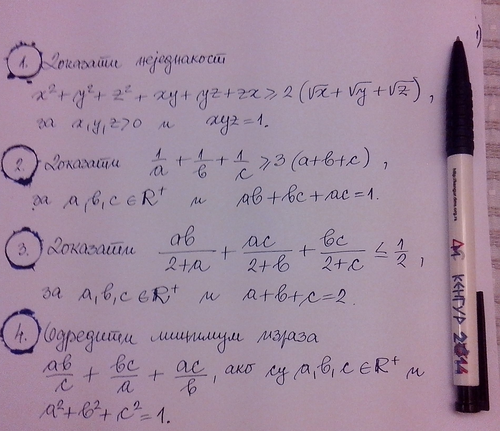 1. Доказати неједнакост
x² + y² + z² + xy + yz + zx ≥ 2(√x + √y + √z),
за x,y,z>0 и xyz=1.
2. Доказати 1/a + 1/b + 1/c ≥ 3(a+b+c),
за a,b,c ∈ R⁺ и ab+bc+ac=1.
3. Доказати ab/(2+a) + ac/(2+b) + bc/(2+c) ≤ 1/2,
за a,b,c ∈ R⁺ и a+b+c=2.
4. Одредити минимум израза
ab/c + bc/a + ac/b, ако су a,b,c ∈ R⁺ и
a²+b²+c²=1.
КЕНГУР 2014